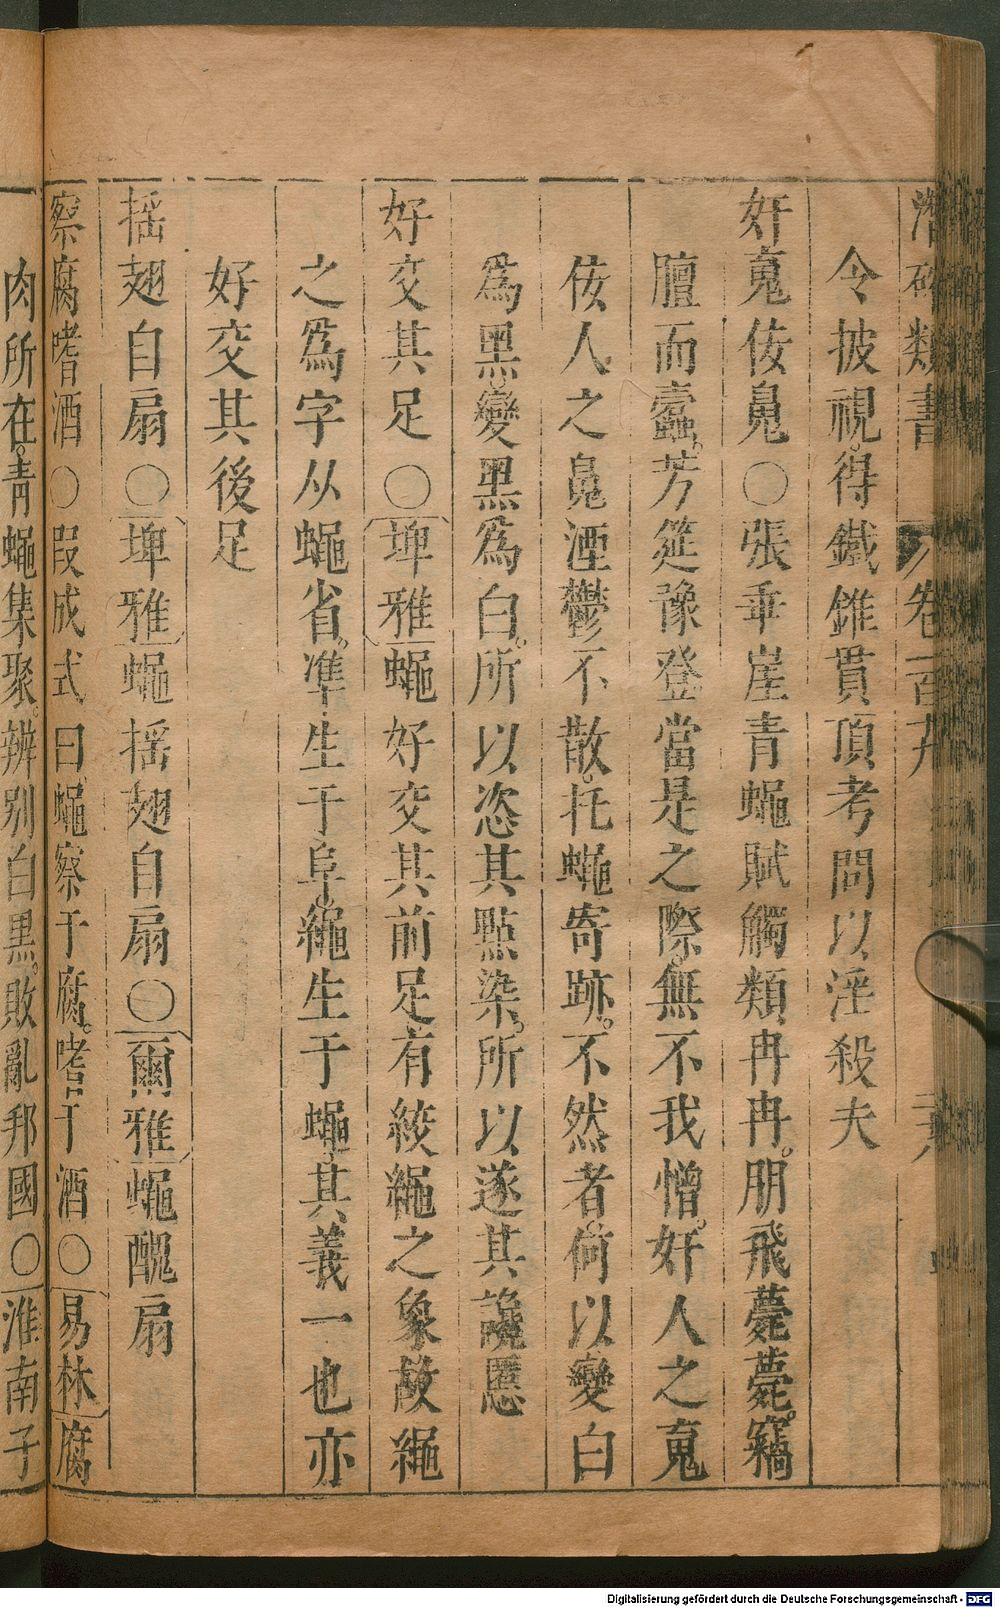 潛確類書 卷一百九
令披視得鐵錐貫頂考問以淫殺夫
奸䰟佞鬼○張乖崖青蠅賦觸類冉冉。朋飛薨薨。竊
膻而蠹。芳筵豫登當是之際。無不我憎。奸人之䰟
佞人之鬼湮鬱不散。托蠅寄跡。不然者。何以變白
為黑。變黑為白。所以恣其點染。所以遂其讒慝
好交其足○埤雅蠅好交其前足有絞繩之象故繩
之為字从蠅省。準生于阜。繩生于蠅。其義一也亦
好交其後足
搖翅自扇○埤雅蠅搖翅自扇○爾雅蠅醜扇
察腐嗜酒○叚成式曰蠅察于腐。嗜于酒○易林腐
肉所在。青蠅集聚。辨別白黑。敗亂邦國○淮南子
Digitalisierung gefördert durch die Deutsche Forschungsgemeinschaft - DFG